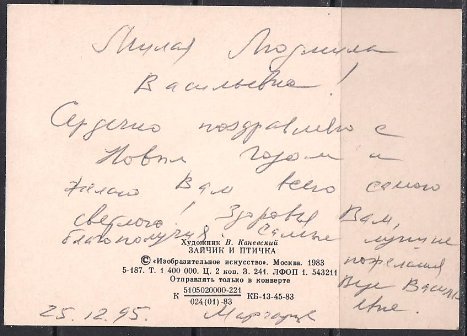 Милая Людмила
Васильевна!
Сердечно поздравляю с
Новым годом и
желаю Вам всего самого
светлого! Здоровья Вам,
благополучия. Самые лучшие
пожелания
Вере Васильевне.
Художник В. Каневский
ЗАЙЧИК И ПТИЧКА
© «Изобразительное искусство». Москва. 1983
5-187. Т. 1 400 000. Ц. 2 коп. З. 241. ЛФОП 1. 543211
Отправлять только в конверте
К 5105020000-221 КБ-13-45-83
024(01)-83
25.12.95. Маргарита